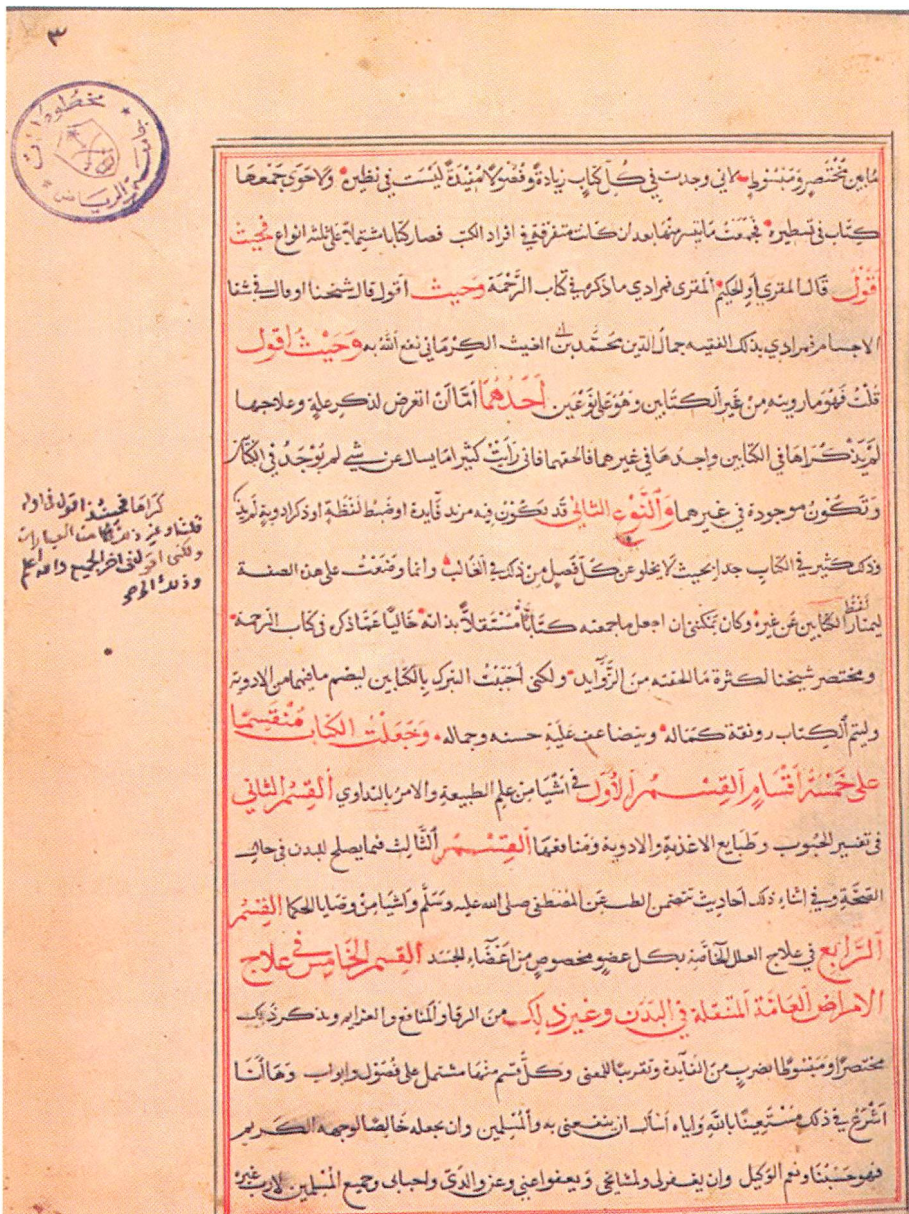 ٣
مخطوطات
الرياض
ما بين مختصر ومبسوط لاني وجدت في كل كتاب زيادة وفصولا مفيدة ليست في نظيره ولا حوى جمعها
كتاب في تسطيره فجمعت ما تيسر منها بعد ان كانت متفرقة في افراد الكتب فصار كتابا مشتملا على ثلثة انواع فحيث
أقول قال المقري أو الحكيم المقرى فمرادي ما ذكره في كتاب الرحمة وحيث أقول قال شيخنا او قال في شفا
الاجسام فمرادي بذلك الفقيه جمال الدين محمد بن ابي الغيث الكرماني نفع الله به وحيث اقول
قلت فهو ما رويته من غير الكتابين وهو على نوعين أحدهما أما أن اتعرض لذكر علة وعلاجها
لم يذكراها في الكتابين واجدها في غيرهما فالحقهما فانى رأيت كثيرا ما يسال عن شي لم يوجد في الكتاب
وتكون موجودة في غيرهما والنوع الثاني قد يكون فيه مزيد فايدة اوضبط لفظة او ذكر ادوية لم يذ
كراها فحينئذ اقول في اوله
قلت وغير ذلك من العبارات
ولكني اقول في اخر الجميع والله اعلم
وذلك كثير في الكتاب جدا بحيث لا يخلو عن كل فصل من ذلك في الغالب وانما وضعت على هذه الصفة
ليمتاز لفظ الكتابين عن غيره وكان يمكنني ان اجعل ما جمعته كتابا مستقلا بذاته خاليا عما ذكره في كتاب الرحمة
ومختصر شيخنا لكثرة ما الحقته من الزوايد ولكني أحببت التبرك بالكتابين ليضم ما فيهما من الادوية
وليتم الكتاب رونقة كماله ويتضاعف عليه حسنه وجماله وجعلت الكتاب منقسما
على خمسة أقسام القسم الأول في اشيا من علم الطبيعة والامر بالتداوي القسم الثاني
في تفسير الحبوب وطبايع الاغذية والادوية ومنافعها القسم الثالث فيما يصلح للبدن في حال
الصحة وفي اثناء ذلك أحاديث تتضمن الطب عن المصطفى صلى الله عليه وسلم واشيا من وصايا الحكما القسم
الرابع في علاج العلل الخاصة بكل عضو مخصوص من أعضاء الجسد القسم الخامس في علاج
الامراض العامة المتنقلة في البدن وغير ذلك من الرقا والمنافع والعزايم ويذكر ذلك
مختصرا ومبسوطا بضرب من الفايدة وتقريبا للمعنى وكل قسم منها مشتمل على فصول وابواب وها أنا
اشرع في ذلك مستعينا بالله واياه أسأل ان ينفعني به والمسلمين وان يجعله خالصا لوجهه الكريم
فهو حسبنا ونعم الوكيل وان يغفر لي ولمشايخي ويعفو اعني وعن والدي واحبابي وجميع المسلمين لا رب غيره